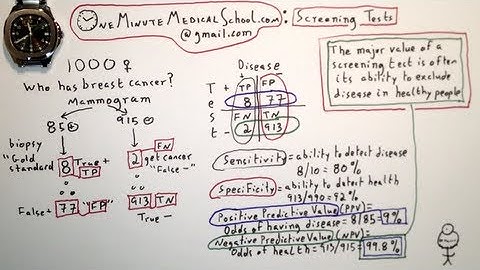 OneMinuteMedicalSchool.com: Screening Tests
@gmail.com
1000 ♀
Who has breast cancer?
Mammogram
85 +
915 -
biopsy
"Gold standard"
8 True +
TP
2 get cancer
FN
"False -"
False + 77 "FP"
913 TN
True -
Disease
+ -
Test
+ -
TP FP
8 77
FN TN
2 913
Sensitivity = ability to detect disease
8/10 = 80%
Specificity = ability to detect health
913/990 = 92%
Positive Predictive Value (PPV) =
Odds of having disease = 8/85 = 9%
Negative Predictive Value (NPV) =
Odds of health = 913/915 = 99.8%
The major value of a
screening test is often
its ability to exclude
disease in healthy people